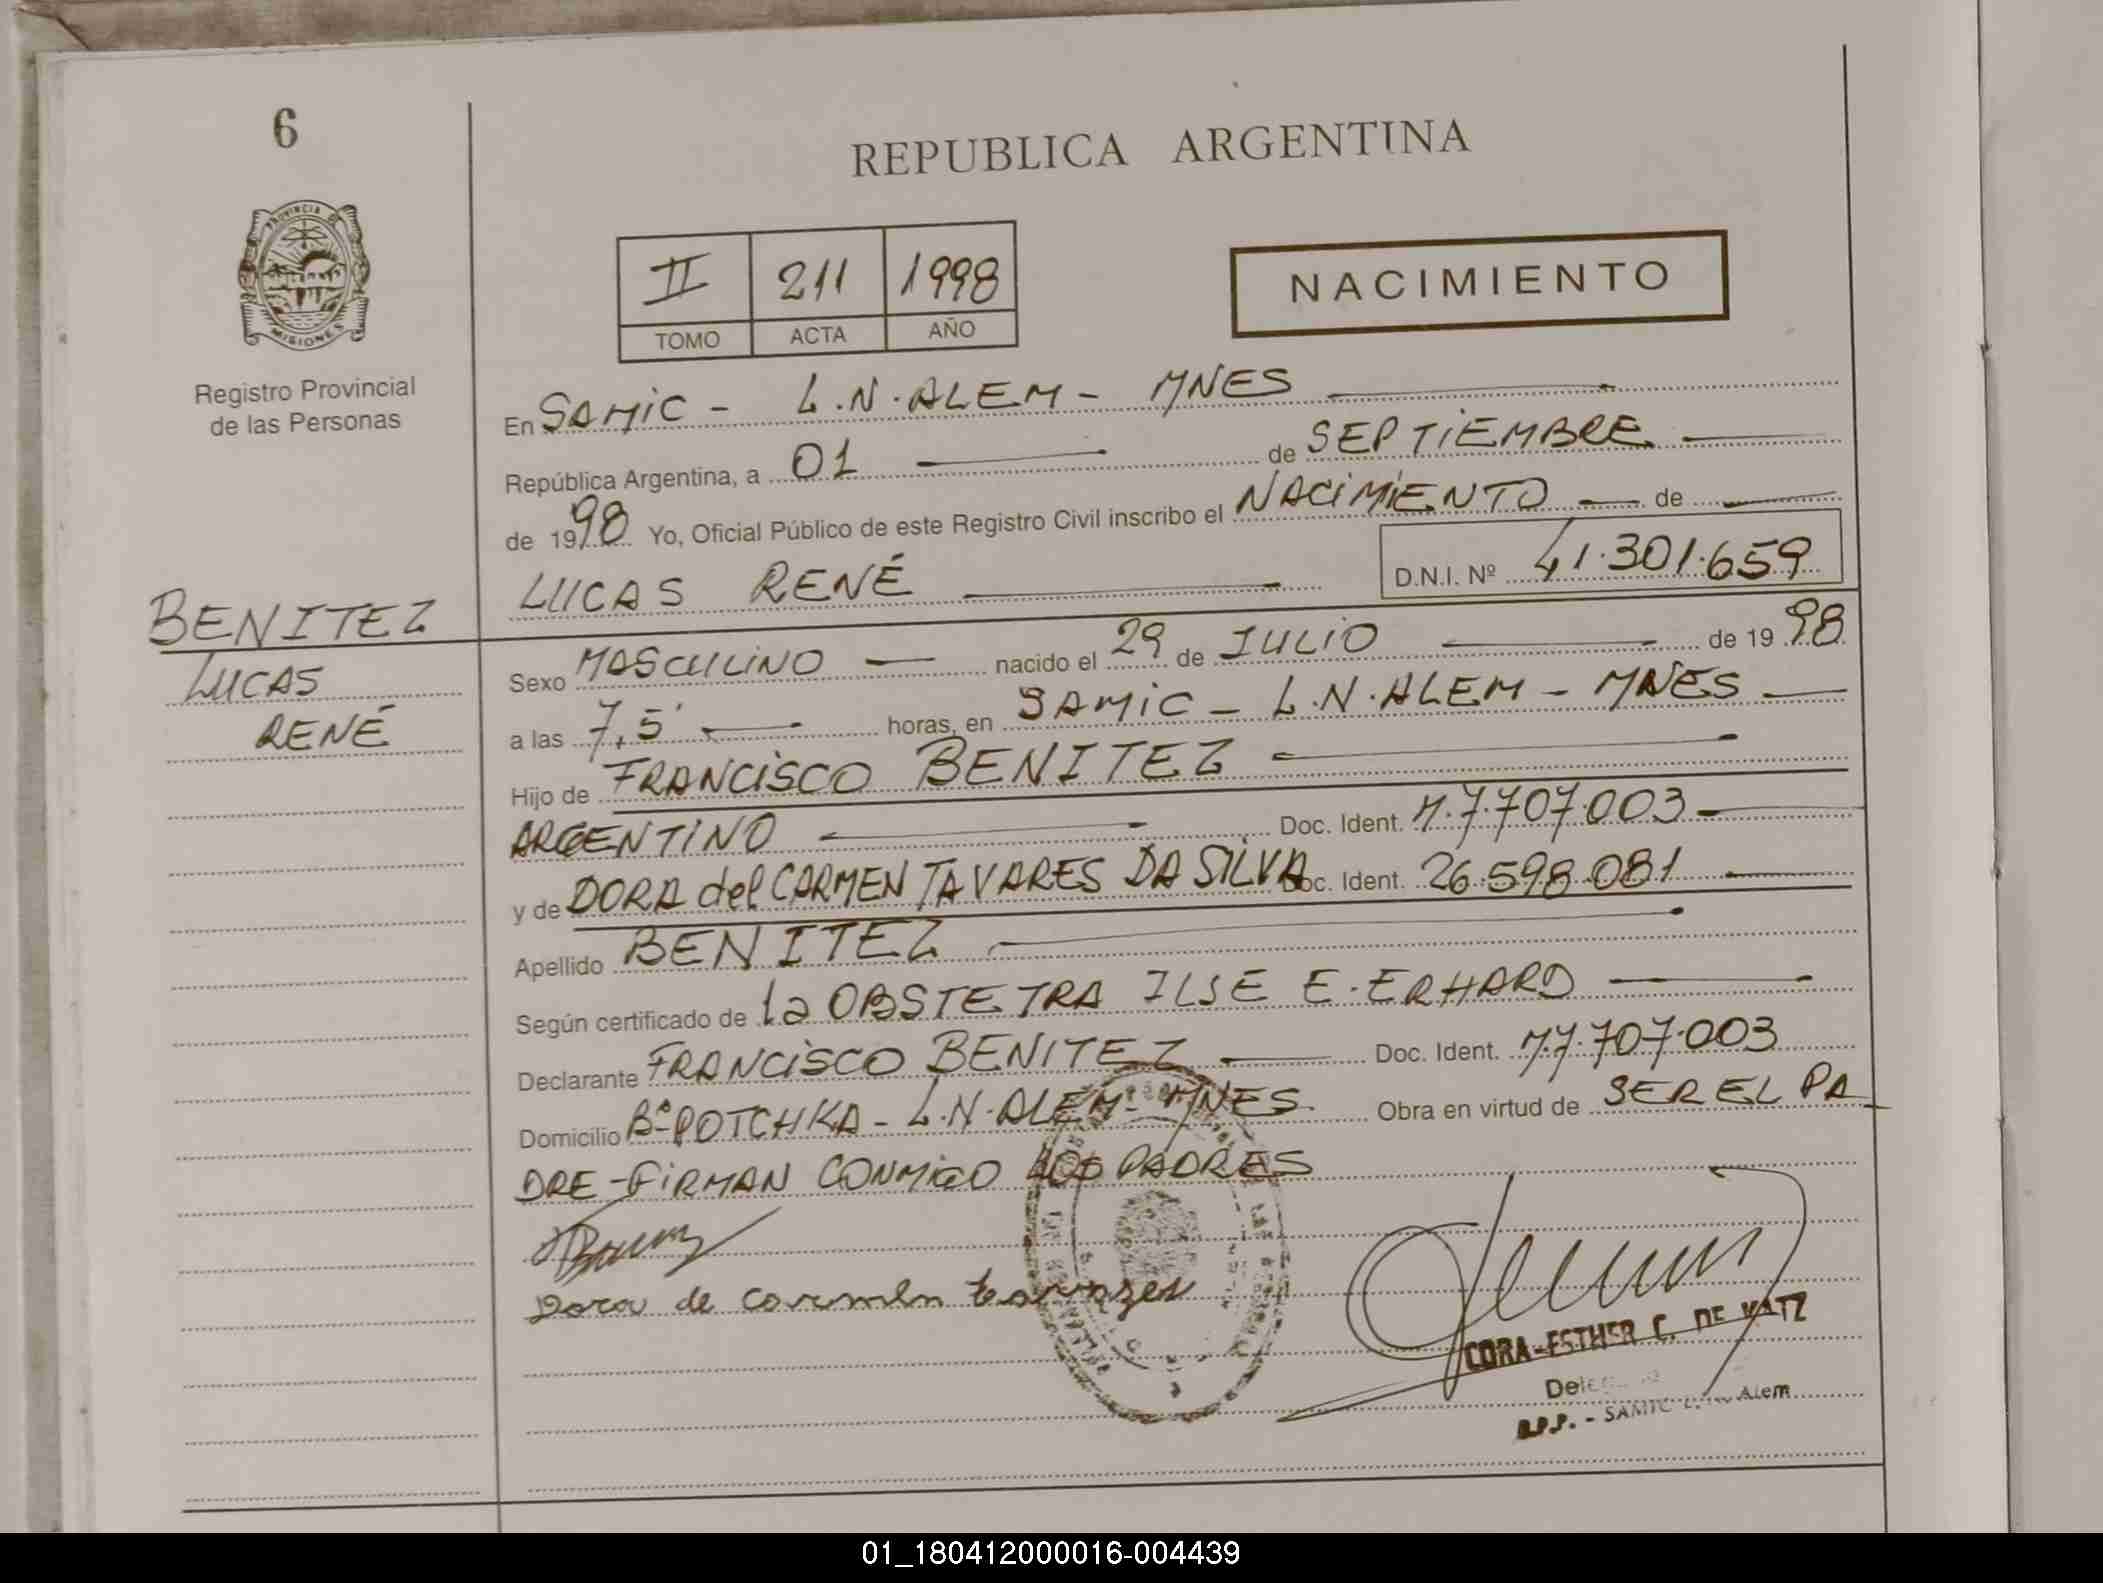 6
REPUBLICA ARGENTINA
PROVINCIA DE
MISIONES
Registro Provincial
de las Personas
II 211 1998
TOMO ACTA AÑO
NACIMIENTO
En SAMIC - L.N.ALEM - MNES
República Argentina, a 01 de SEPTIEMBRE
de 1998 Yo, Oficial Público de este Registro Civil inscribo el NACIMIENTO de
LUCAS RENÉ D.N.I. Nº 41.301.659
BENITEZ
LUCAS
RENÉ
Sexo MASCULINO nacido el 29 de JULIO de 1998
a las 7,5' horas, en SAMIC - L.N.ALEM - MNES
Hijo de FRANCISCO BENITEZ
ARGENTINO Doc. Ident. M.7.707.003
y de DORA del CARMEN TAVARES DA SILVA Doc. Ident. 26.598.081
Apellido BENITEZ
Según certificado de la OBSTETRA ILSE E. ERHARD
Declarante FRANCISCO BENITEZ Doc. Ident. M.7.707.003
Domicilio Bº POTCHKA - L.N.ALEM - MNES Obra en virtud de SER EL PA
DRE - FIRMAN CONMIGO LOS PADRES
Dora de Carmen
CORA-ESTHER C. DE KATZ
R.P.P. - SAMIC L. N. Alem
01_180412000016-004439